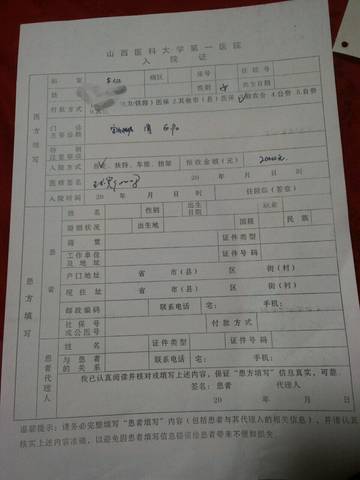 山西医科大学第一医院
入 院 证
医方填写
科室 病区 床号 住院号
姓 性别 出生日期
付款方式 医保 2.其他市(县)医保 农合 4.公费 5.自费
门诊主要诊断
特别注意事项
入院方式 扶持、车推、担架 预收金额(元) 20000元
医师签名 20 年 月 日 时
入院时间 20 年 月 日 时 住院处(签章)
患方填写
患者
姓名 性别 出生日期 职业
婚姻状况 出生地 国籍 民族
籍贯 证件类型
工作单位及地址 证件号码
户口地址 省 市(县) 区 街(村)
现住址 省 市(县) 区 街(村)
邮政编码 联系电话 宅: 手机:
社保号或公医号 付款方式
患者代理人
姓名 证件类型 证件号码
与患者的关系 联系电话 宅: 手机:
我已认真阅读并核对或填写上述内容,保证“患方填写”信息真实,可靠。
签名:患者 代理人
20 年 月 日
温馨提示:请务必完整填写“患者填写”内容(包括患者与其代理人的相关信息),并请认真
核实上述内容准确,以避免因患者填写信息错误给患者带来不便和损失。